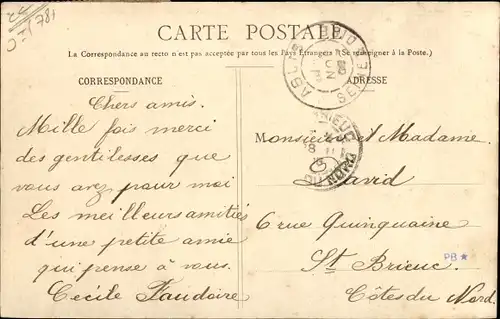 CARTE POSTALE
(La Correspondance au recto n'est pas acceptée par tous les Pays Étrangers (Se renseigner à la Poste.)
CORRESPONDANCE
ADRESSE
ABLON
SEINE
Chers amis.
Mille fois merci
des gentilesses que
vous avez pour moi
Les meilleurs amitiés
d'une petite amie
qui pense à vous.
Cecile
Monsieur et Madame
David
6 rue Quinquaine
St Brieuc
PB
Côtes du Nord.